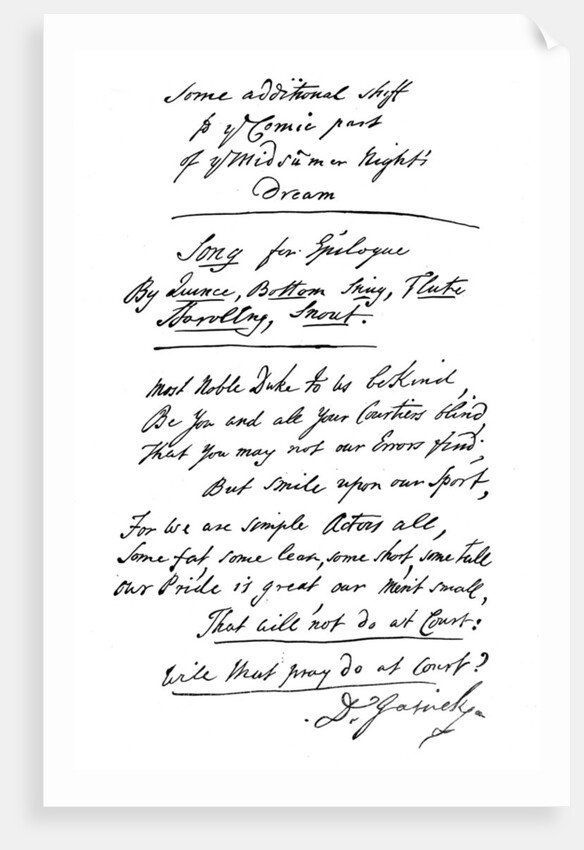 Some additional stuff
to yᵉ Comic part
of yᵉ Midsūmer Night's
Dream
Song for Epilogue
By Quince, Bottom Snug, Flute
Starveling, Snout.
Most Noble Duke to us be kind,
Be You and all Your Courtiers blind,
That You may not our Errors find;
But smile upon our Sport,
For we are simple Actors all,
Some fat, some lean, some short, some tall
Our Pride is great our Merit small,
That will not do at Court:
Will that pray do at Court?
D. Garrick